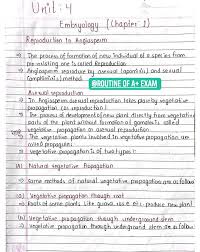 Unit : 4
Embryology (Chapter 1)
Reproduction in Angiosperm
The process of formation of new individual of a species from pre-existing one is called Reproduction
Angiosperm reproduce by asexual (apomitic) and sexual (amphimitic) method.
@ROUTINE OF A+ EXAM
Asexual reproduction
In Angiosperm asexual reproduction takes place by vegetative propagation (or reproduction)
The process of development of new plant directly from vegetative parts of the plant without formation of gametes is called vegetative propagation or asexual reproduction
The vegetative plants involved in vegetative propagation are called propagules
Vegetative propagation is of two types:
(A) Natural Vegetative Propagation
Some methods of natural vegetative propagation are as follow
Vegetative propagation through root
Roots of some plants like guava etc produce new plant
Vegetative propagation through underground stem
of vegetative propagation through underground stem are as follow